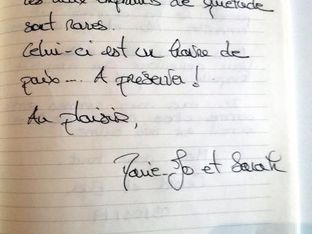 de quiétude
sont rares.
Celui-ci est un havre de
paix.... A préserver !
Au plaisir,
Marie-Jo et Sarah